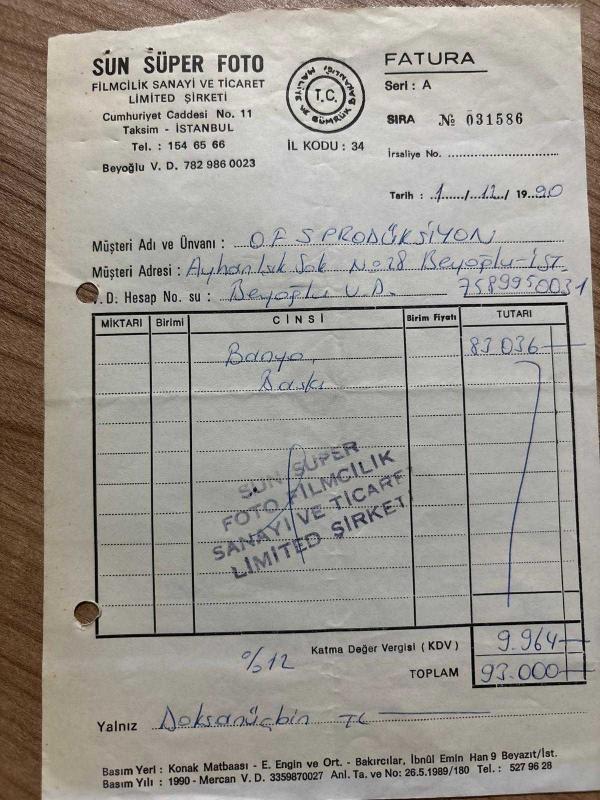 SUN SÜPER FOTO
FİLMCİLİK SANAYİ VE TİCARET
LİMİTED ŞİRKETİ
Cumhuriyet Caddesi No. 11
Taksim - İSTANBUL
Tel. : 154 65 66
Beyoğlu V. D. 782 986 0023
MALİYE VE GÜMRÜK BAKANLIĞI
T.C.
İL KODU : 34
FATURA
Seri : A
SIRA № 031586
İrsaliye No.
Tarih : 1/12/1990
Müşteri Adı ve Ünvanı : OFS PRODÜKSİYON
Müşteri Adresi : Ayhan Işık Sok No 28 Beyoğlu-İST.
V.D. Hesap No. su : Beyoğlu V.D. 7589950031
MİKTARI Birimi CİNSİ Birim Fiyatı TUTARI
Banyo 83036
Baskı
SUN SÜPER
FOTO FİLMCİLİK
SANAYİ VE TİCARET
LİMİTED ŞİRKETİ
%12 Katma Değer Vergisi (KDV) 9.964
TOPLAM 93.000
Yalnız Doksanüçbin TL
Basım Yeri : Konak Matbaası - E. Engin ve Ort. - Bakırcılar, İbnül Emin Han 9 Beyazıt/İst.
Basım Yılı : 1990 - Mercan V. D. 3359870027 Anl. Ta. ve No: 26.5.1989/180 Tel. : 527 96 28